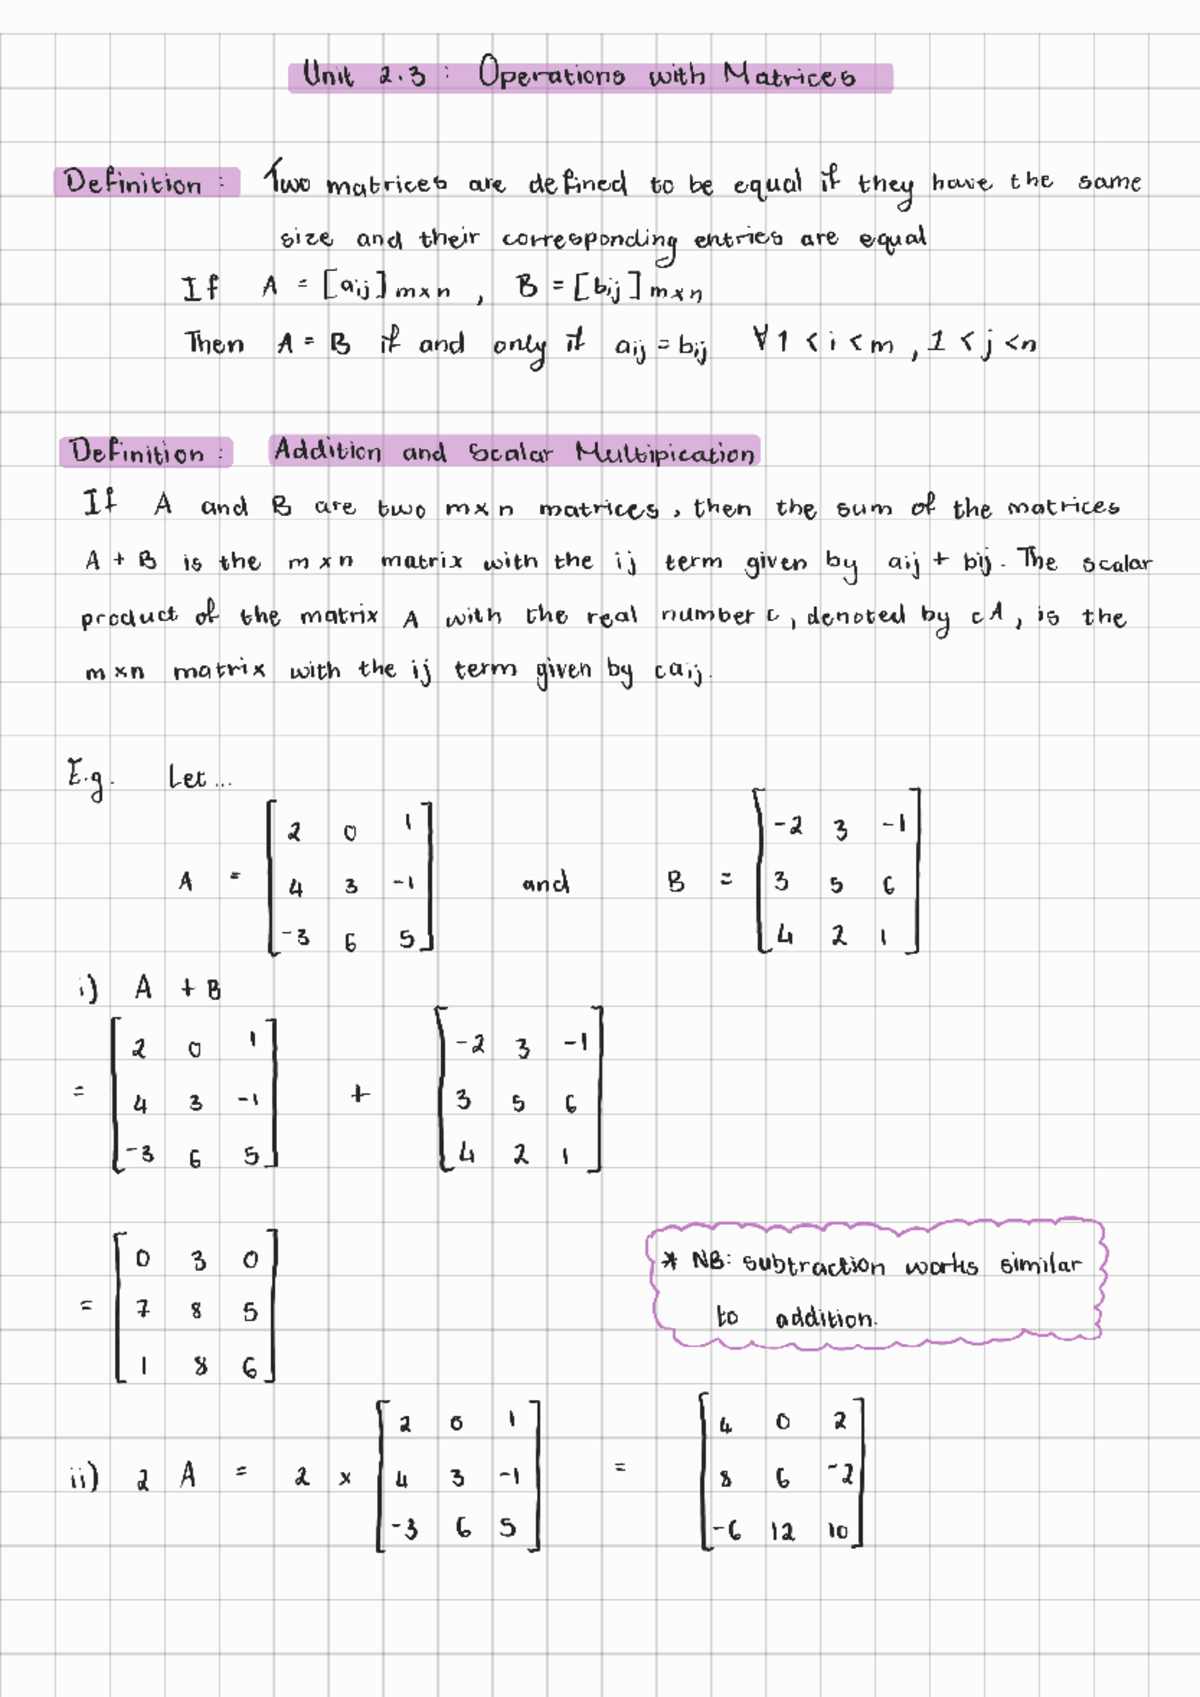 Unit 2.3 : Operations with Matrices
Definition : Two matrices are defined to be equal if they have the same
size and their corresponding entries are equal
If A = [aij] m×n , B = [bij] m×n
Then A = B if and only if aij = bij ∀ 1 < i < m , 1 < j < n
Definition : Addition and Scalar Multipication
If A and B are two m×n matrices, then the sum of the matrices
A + B is the m×n matrix with the ij term given by aij + bij. The scalar
product of the matrix A with the real number c, denoted by cA, is the
m×n matrix with the ij term given by caij.
E.g. Let...
A = [2 0 1
4 3 -1
-3 6 5] and B = [-2 3 -1
3 5 6
4 2 1]
i) A + B
= [2 0 1
4 3 -1
-3 6 5] + [-2 3 -1
3 5 6
4 2 1]
= [0 3 0
7 8 5
1 8 6]
* NB: subtraction works similar
to addition.
ii) 2 A = 2 × [2 0 1
4 3 -1
-3 6 5] = [4 0 2
8 6 -2
-6 12 10]